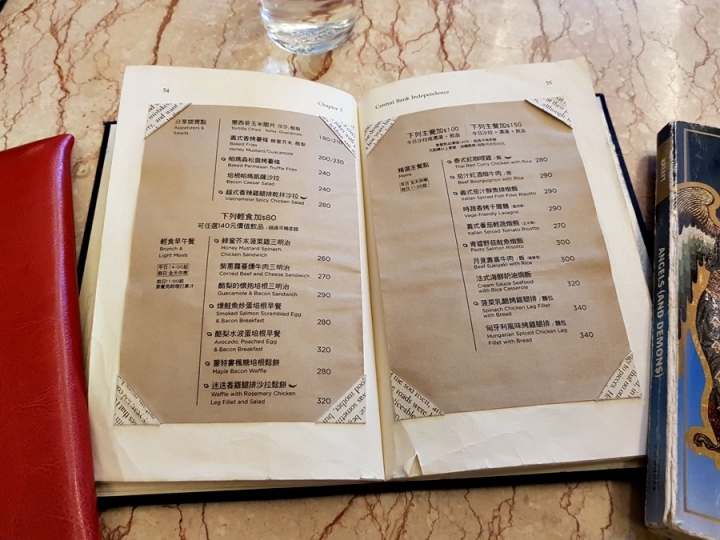 54
Chapter 5
分享頭貨點
Appetizers &
Salads
墨西哥玉米脆片 莎莎.酪梨
Tortilla Chips Salsa.Guacamole
180/210
義式香烤薯條 蜂蜜芥末.酪梨
Baked Fries
Honey Mustard/Guacamole
帕瑪森松露烤薯條 200/230
Baked Parmesan Truffle Fries
240
培根帕瑪凱薩沙拉
Bacon Caesar Salad
240
越式香辣雞腿乾拌沙拉
Vietnamese Spicy Chicken Salad
280
下列輕食加$80
可任選140元價值飲品
輕食早午餐
Brunch &
Light Meals
蜂蜜芥末菠菜雞三明治
Honey Mustard Spinach
Chicken Sandwich
260
紫蕙蘿蔓燻牛肉三明治
Corned Beef and Cheese Sandwich
270
酪梨的懷抱培根三明治
Guacamole & Bacon Sandwich
290
燻鮭魚炒蛋培根早餐
Smoked Salmon Scrambled Egg
& Bacon Breakfast
280
酪梨水波蛋培根早餐
Avocado, Poached Egg
& Bacon Breakfast
320
蒙特婁楓糖培根鬆餅
Maple Bacon Waffle
280
迷迭香雞腿排沙拉鬆餅
Waffle with Rosemary Chicken
Leg Fillet and Salad
320
Central Bank Independence
55
下列主餐加$100
今日沙拉+濃湯+飲品
下列主餐加$150
今日沙拉+濃湯+飲品
精選主餐點
Mains
泰式紅咖哩雞/飯
Thai Red Curry Chicken with Rice
280
茄汁紅酒燉牛肉/飯
Beef Bourguignon with Rice
290
義式茄汁鮮魚排燉飯
Italian Spiced Fish Fillet Risotto
290
時蔬香烤千層麵
Vege-friendly Lasagna
290
義式番茄輕蔬燉飯
Italian Spiced Tomato Risotto
270
青醬野菇鮭魚燉飯
Pesto Salmon Risotto
300
月見壽喜牛肉/飯
Beef Sukiyaki with Rice
300
法式海鮮奶油焗飯
Cream Sauce Seafood
with Rice Casserole
320
菠菜乳酪烤雞腿排/麵包
Spinach Chicken Leg Fillet
with Bread
340
匈牙利風味烤雞腿排/麵包
Hungarian Spiced Chicken Leg Fillet
with Bread
340
ANGELS (AND DEMONS)